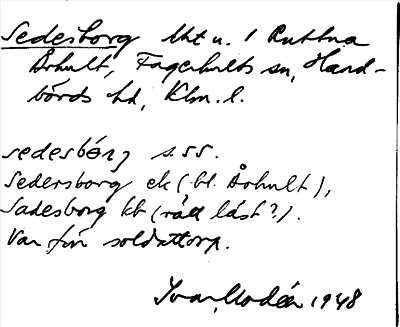 Sedesborg lht u. 1 Ruttna
Århult, Fagerhults sn, Hand-
börds hd, Klm. l.
sedesbórj s. SS.
Sedersborg ek (bl. Århult),
Sadesborg kb (rätt läst?).
Var förr soldattorp.
Ivar Modéer 1948